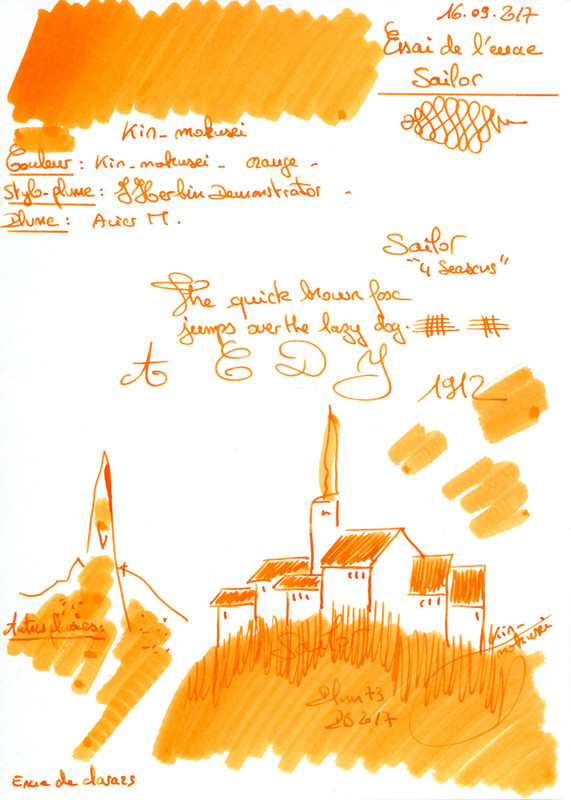 16.09.2017
Essai de l'encre
Sailor
Kin-mokusei
Couleur : Kin-mokusei - orange -
Stylo-plume : J Herbin Demonstrator -
Plume : Acier M.
Sailor
"4 Seasons"
The quick brown fox
jumps over the lazy dog.
A E D J
1912
Autres
Sailor
Kin-
mokusei
2017
Encre de